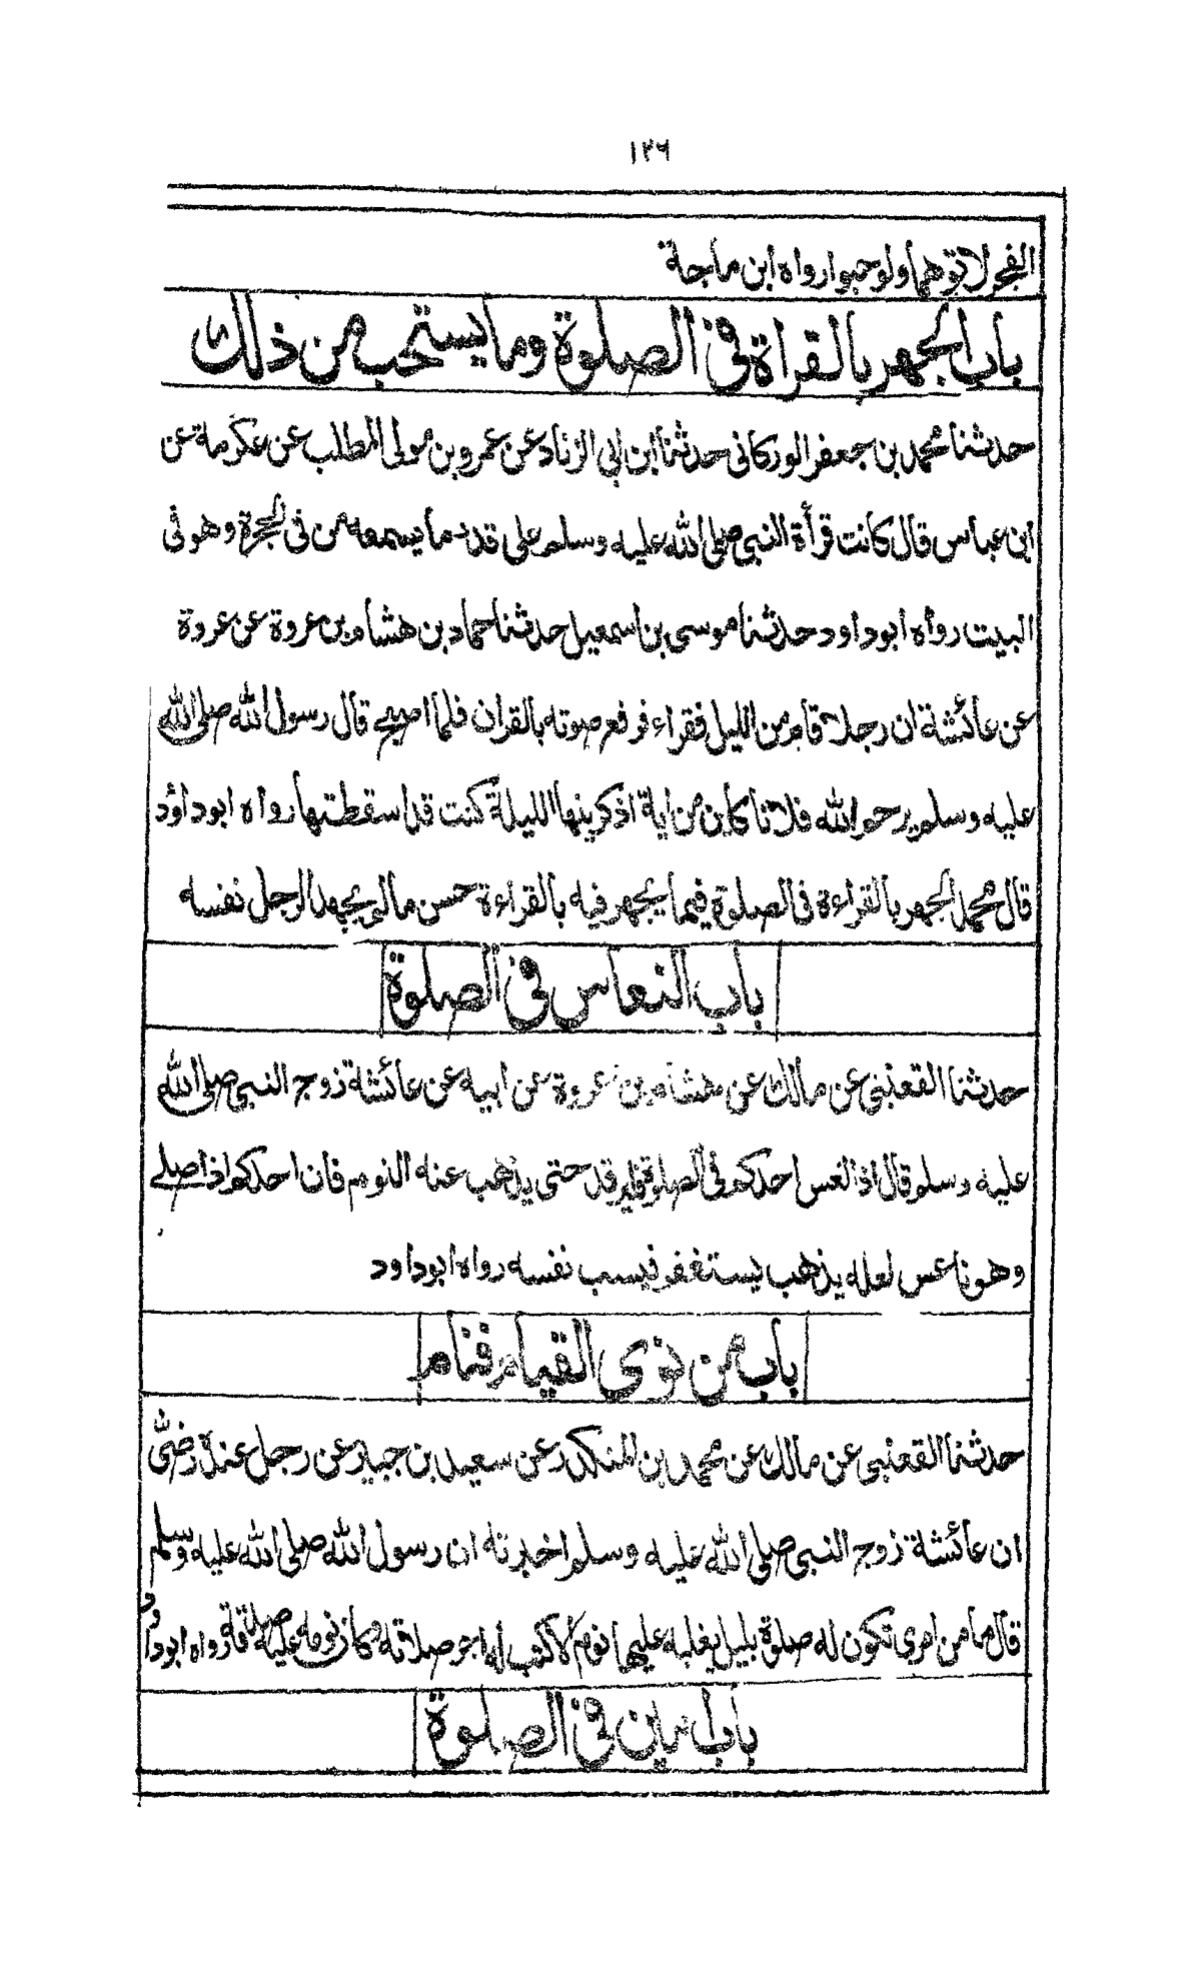 ١٢٦
الفجر لاتوهما ولو حبوا رواه ابن ماجة
باب الجهر بالقراة فى الصلوة وما يستحب من ذلك
حدثنا محمد بن جعفر الوركانى حدثنا ابن ابى الزناد عن عمرو بن مولى المطلب عن عكرمة عن
ابن عباس قال كانت قرأة النبى صلى الله عليه وسلم على قدر ما يسمعه من فى الحجرة وهو فى
البيت رواه ابوداود حدثنا موسى بن اسمعيل حدثنا حماد بن هشام بن عروة عن عروة
عن عائشة ان رجلا قام من الليل فقراء فرفع صوته بالقران فلما اصبح قال رسول الله صلى الله
عليه وسلم يرحم الله فلانا كاين من اية اذكرينها الليلة كنت قد اسقطتها رواه ابوداؤد
قال محمد الجهر بالقراءة فى الصلوة فيما يجهر فيه بالقراءة حسن مالم يجهد الرجل نفسه
باب النعاس فى الصلوة
حدثنا القعنبى عن مالك عن هشام بن عروة عن ابيه عن عائشة زوج النبى صلى الله
عليه وسلم قال اذا نعس احدكم فى الصلوة فليرقد حتى يذهب عنه النوم فان احدكم اذا صلى
وهو ناعس لعله يذهب يستغفر فيسب نفسه رواه ابوداود
باب من نوى القيام فنام
حدثنا القعنبى عن مالك عن محمد بن المنكدر عن سعيد بن جبير عن رجل عنده رضى
ان عائشة زوج النبى صلى الله عليه وسلم اخبرته ان رسول الله صلى الله عليه وسلم
قال ما من امرى تكون له صلوة بليل يغلبه عليها نوم الا كتب له اجر صلاته وكان نومه عليه صدقة رواه ابوداود
باب امين فى الصلوة